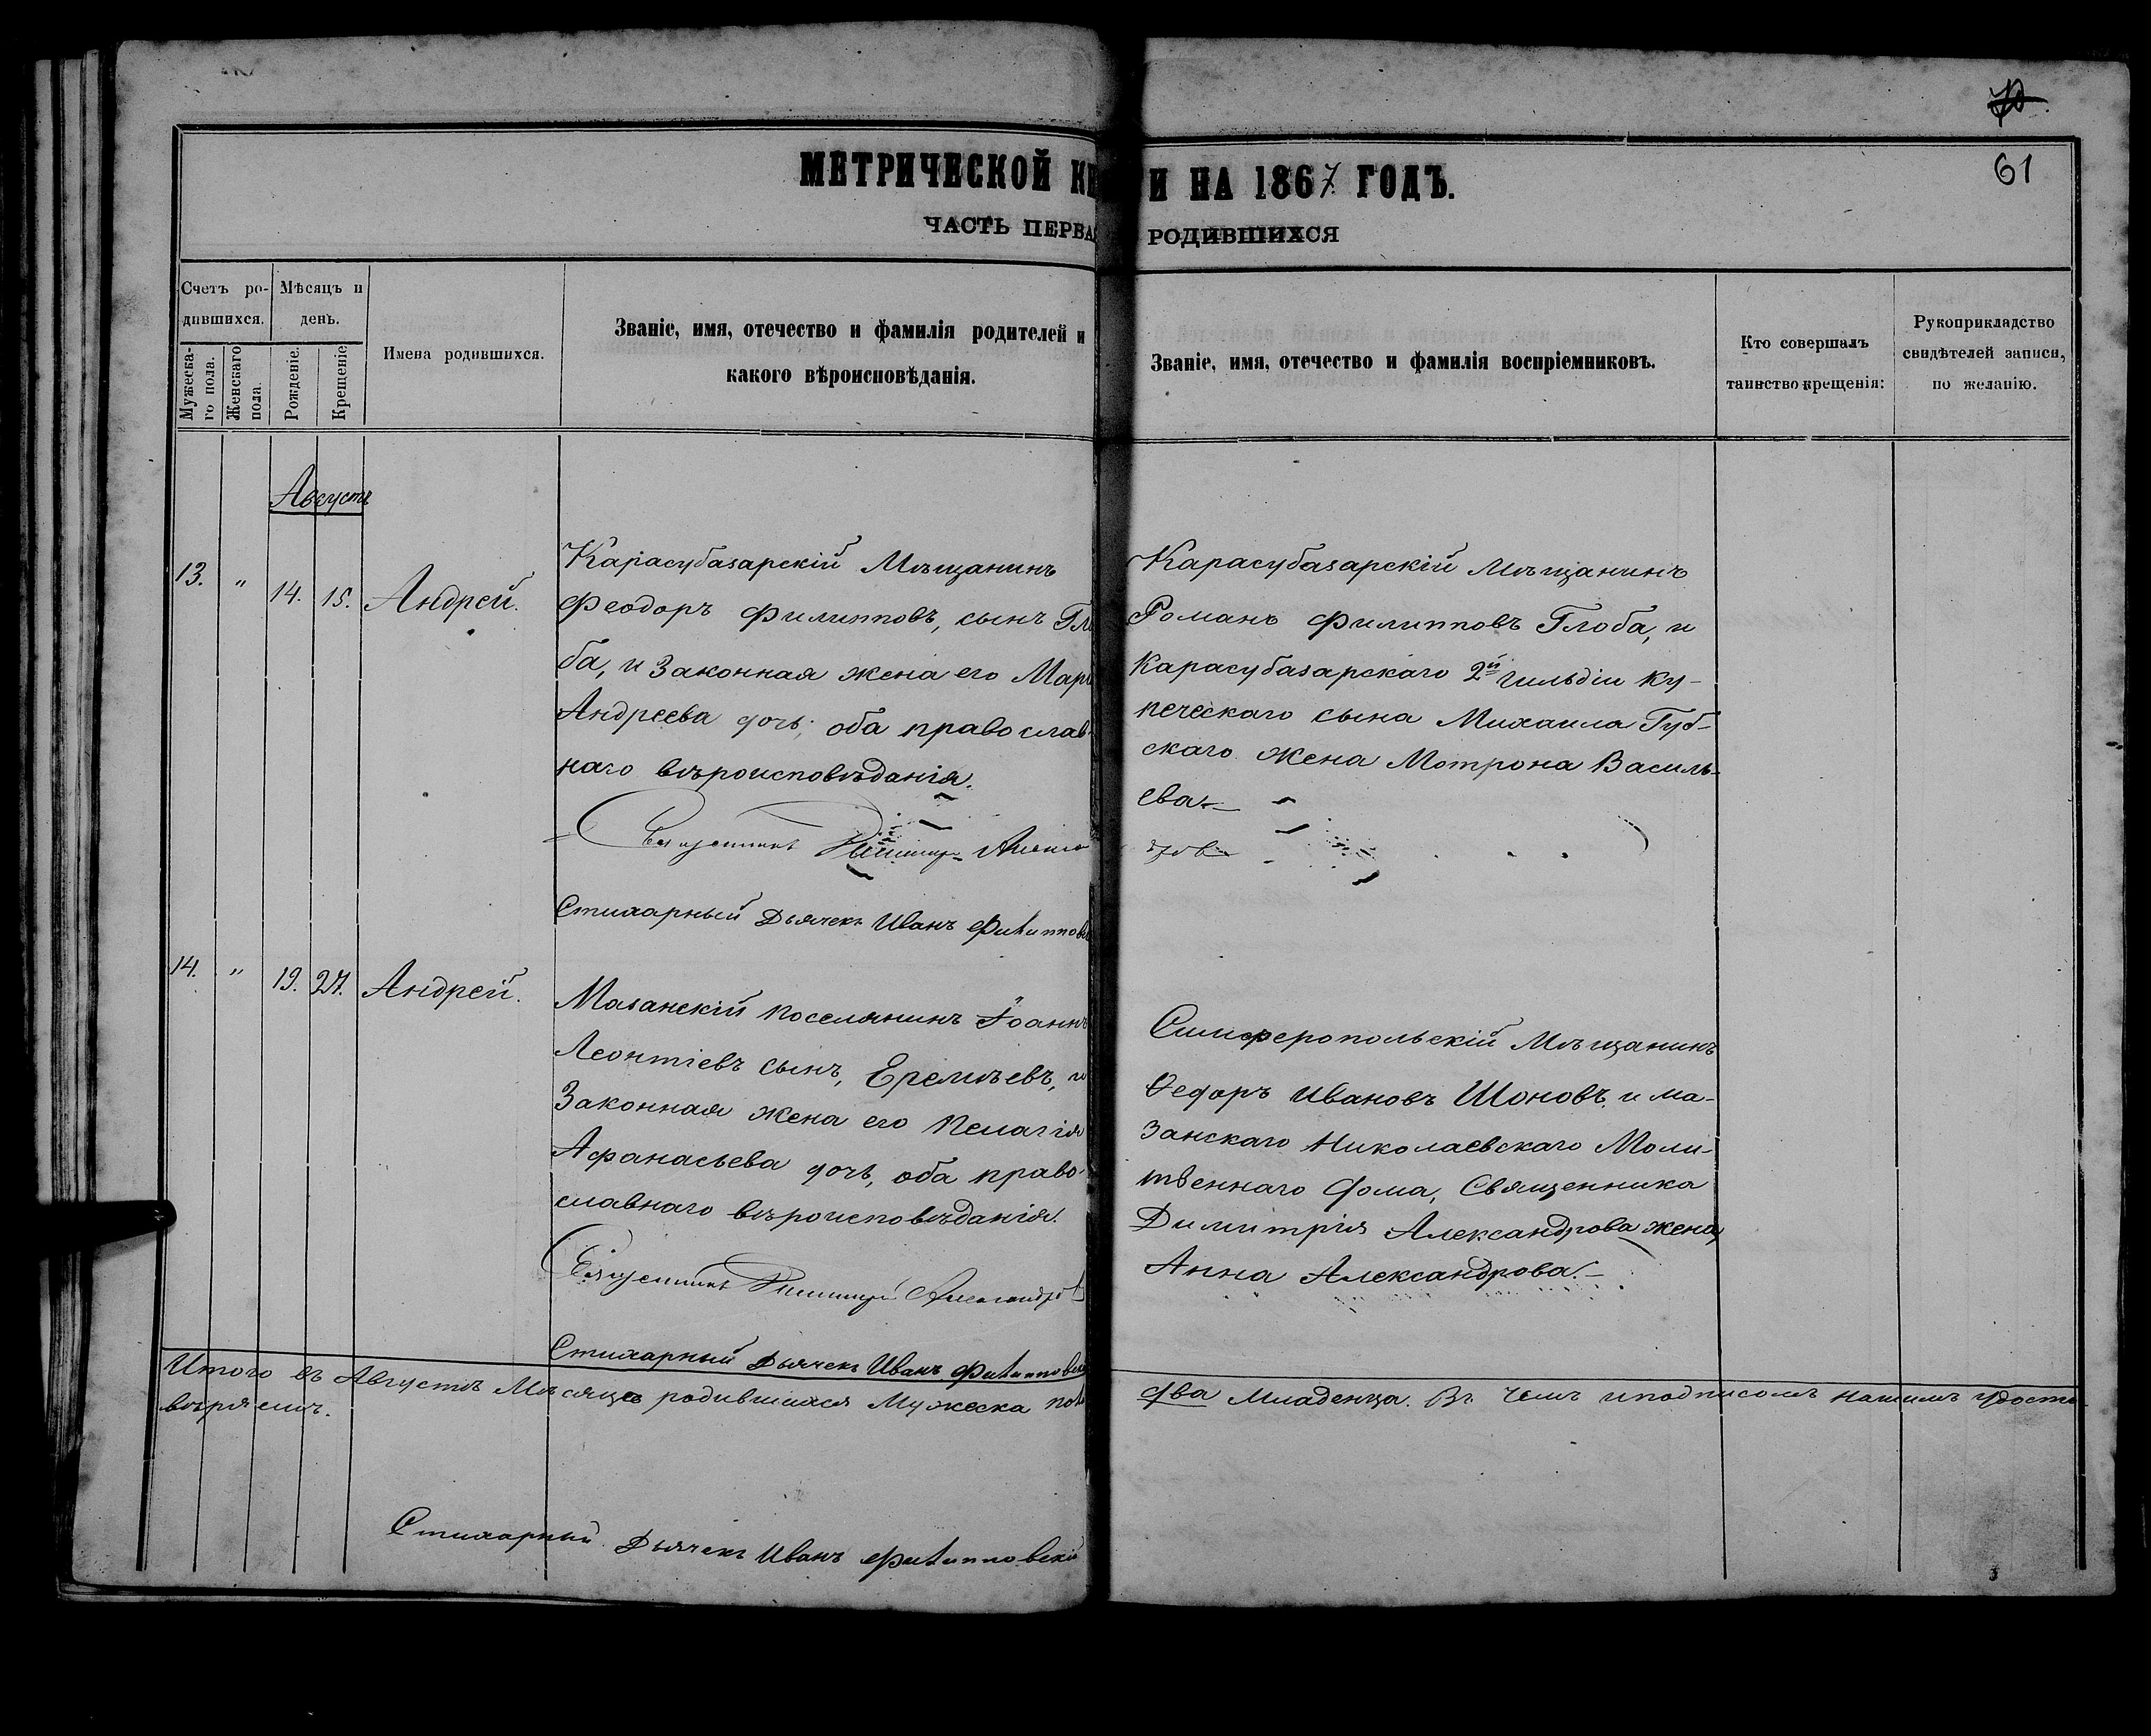 70
61
МЕТРИЧЕСКОЙ КН И НА 1867 ГОДЪ.
ЧАСТЬ ПЕРВАЯ РОДИВШИХСЯ
Счетъ ро-
дившихся.
Мѣсяцъ и
день.
Мужеска-
го пола.
Женскаго
пола.
Рожденіе.
Крещеніе
Имена родившихся.
Званіе, имя, отечество и фамилія родителей и
какого вѣроисповѣданія.
Званіе, имя, отечество и фамилія воспріемниковъ.
Кто совершалъ
таинство крещенія:
Рукоприкладство
свидѣтелей записи,
по желанію.
Августъ
13. " 14. 15. Андрей.
Карасубазарскій Мѣщанинъ
Феодоръ Филипповъ, сынъ Гло
ба, и Законная жена его Мар
Андреева дочь, оба православ
наго вѣроисповѣданія.
Священникъ Димитр
Стихарный Дьячекъ Иванъ Филиппов
Карасубазарскій Мѣщанинъ
Романъ Филипповъ Глоба, и
Карасубазарскаго 2й гильдіи ку-
печескаго сына Михаила Губ-
скаго жена Мотрона Василь-
ева
14. " 19. 27. Андрей.
Мазанскій поселянинъ Іоаннъ
Леонтіевъ сынъ, Еремѣевъ, и
Законная жена его Пелагія
Афанасьева дочь, оба право-
славнаго вѣроисповѣданія.
Священникъ Димитрій Александров
Стихарный Дьячекъ Иванъ Филипповскі
Симферопольскій Мѣщанинъ
Ѳедоръ Ивановъ Шоновъ, и Ма-
занскаго Николаевскаго Моли-
твеннаго дома, Священника
Димитрія Александрова жена,
Анна Александрова.
Итого въ Августѣ Мѣсяцѣ родившихся Мужеска пола два Младенца. Въ чемъ и подписомъ нашимъ удосто-
вѣряемъ.
Стихарный Дьячекъ Иванъ Филипповскій